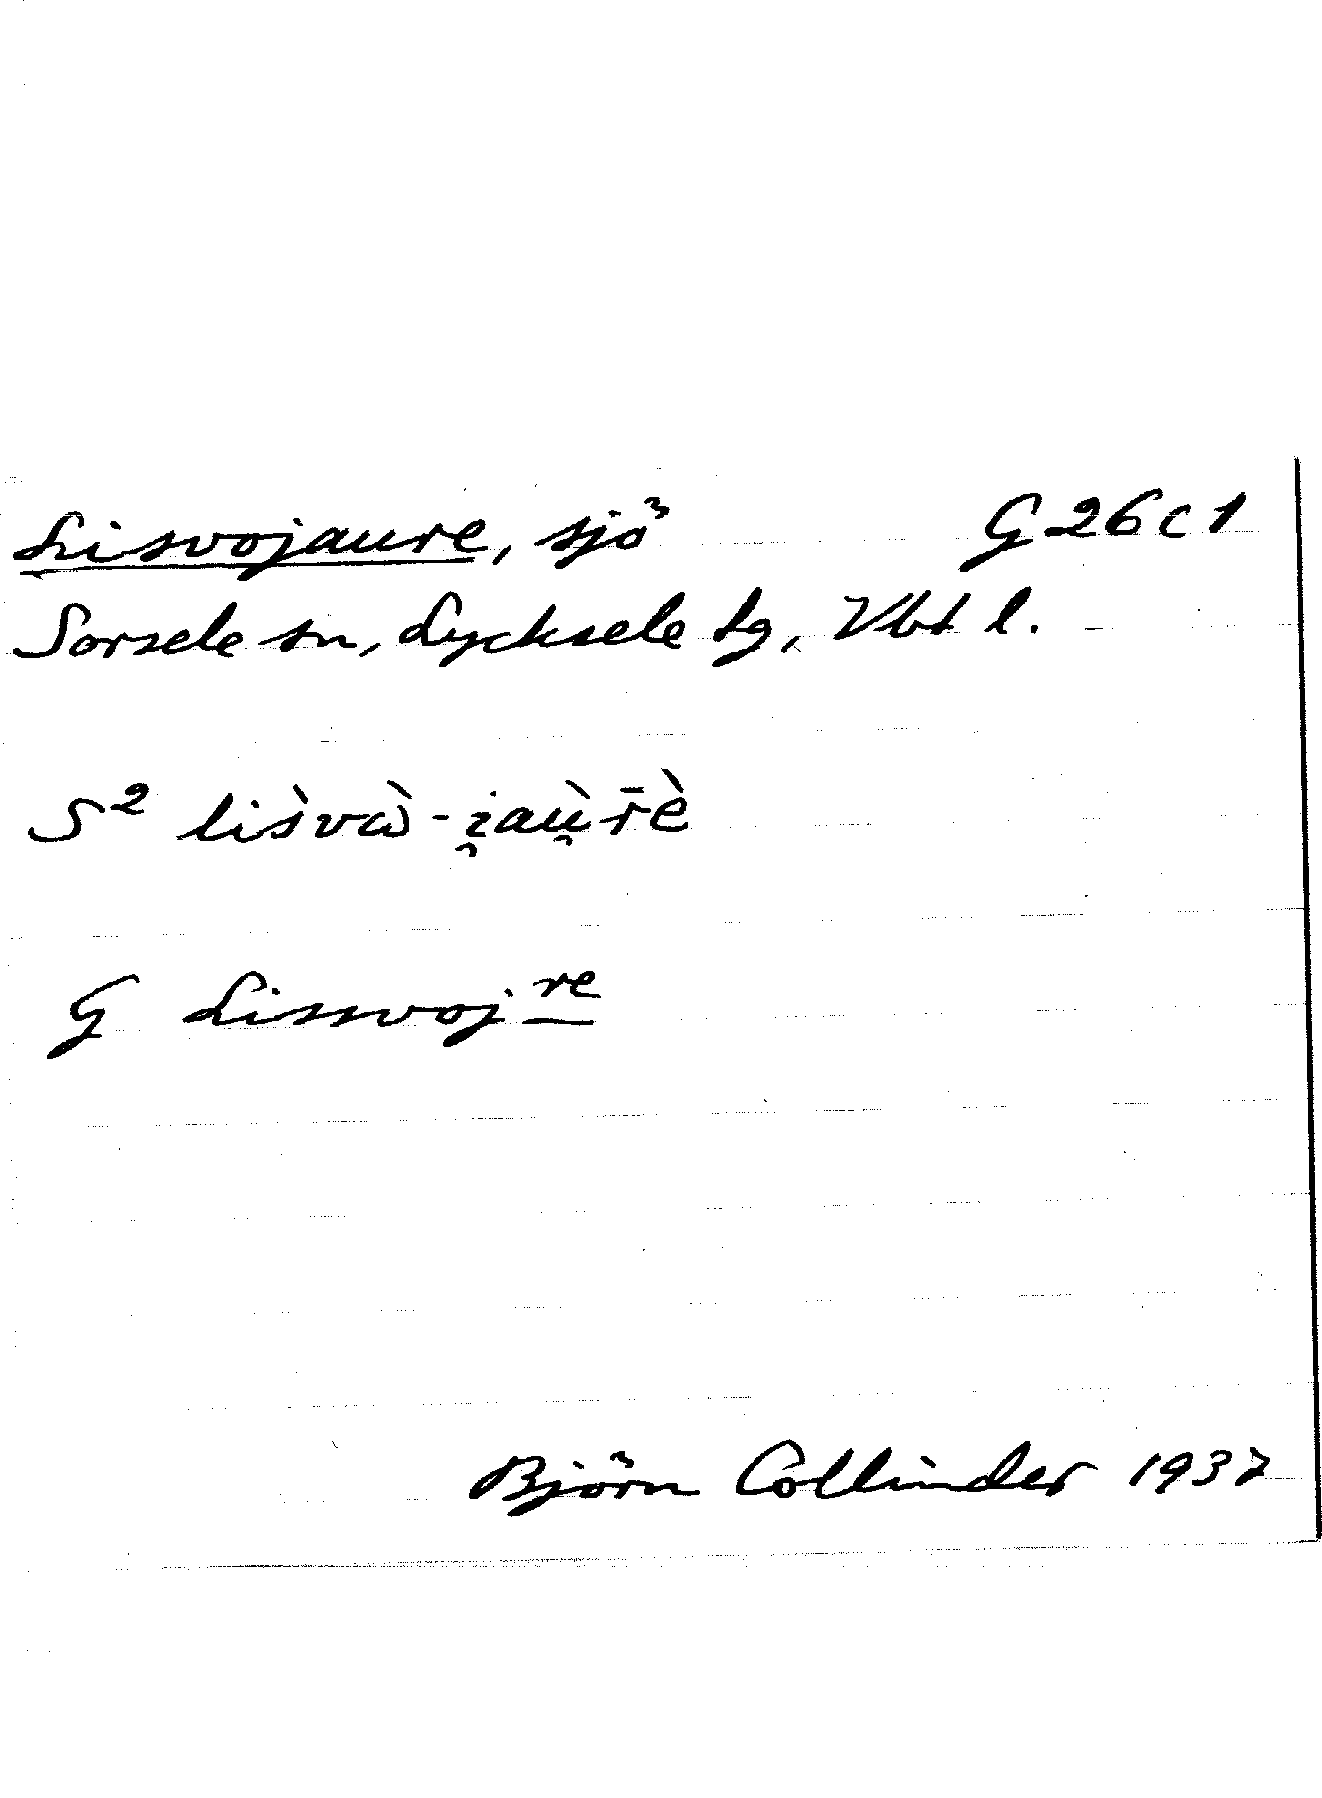 Lisvojaure, sjö G26c1
Sorsele sn, Lycksele tg, Vbt l.
S² lis̀vὼ-i̯aù̯r̄è
G Lissvojʳᵉ
Björn Collinder 1937